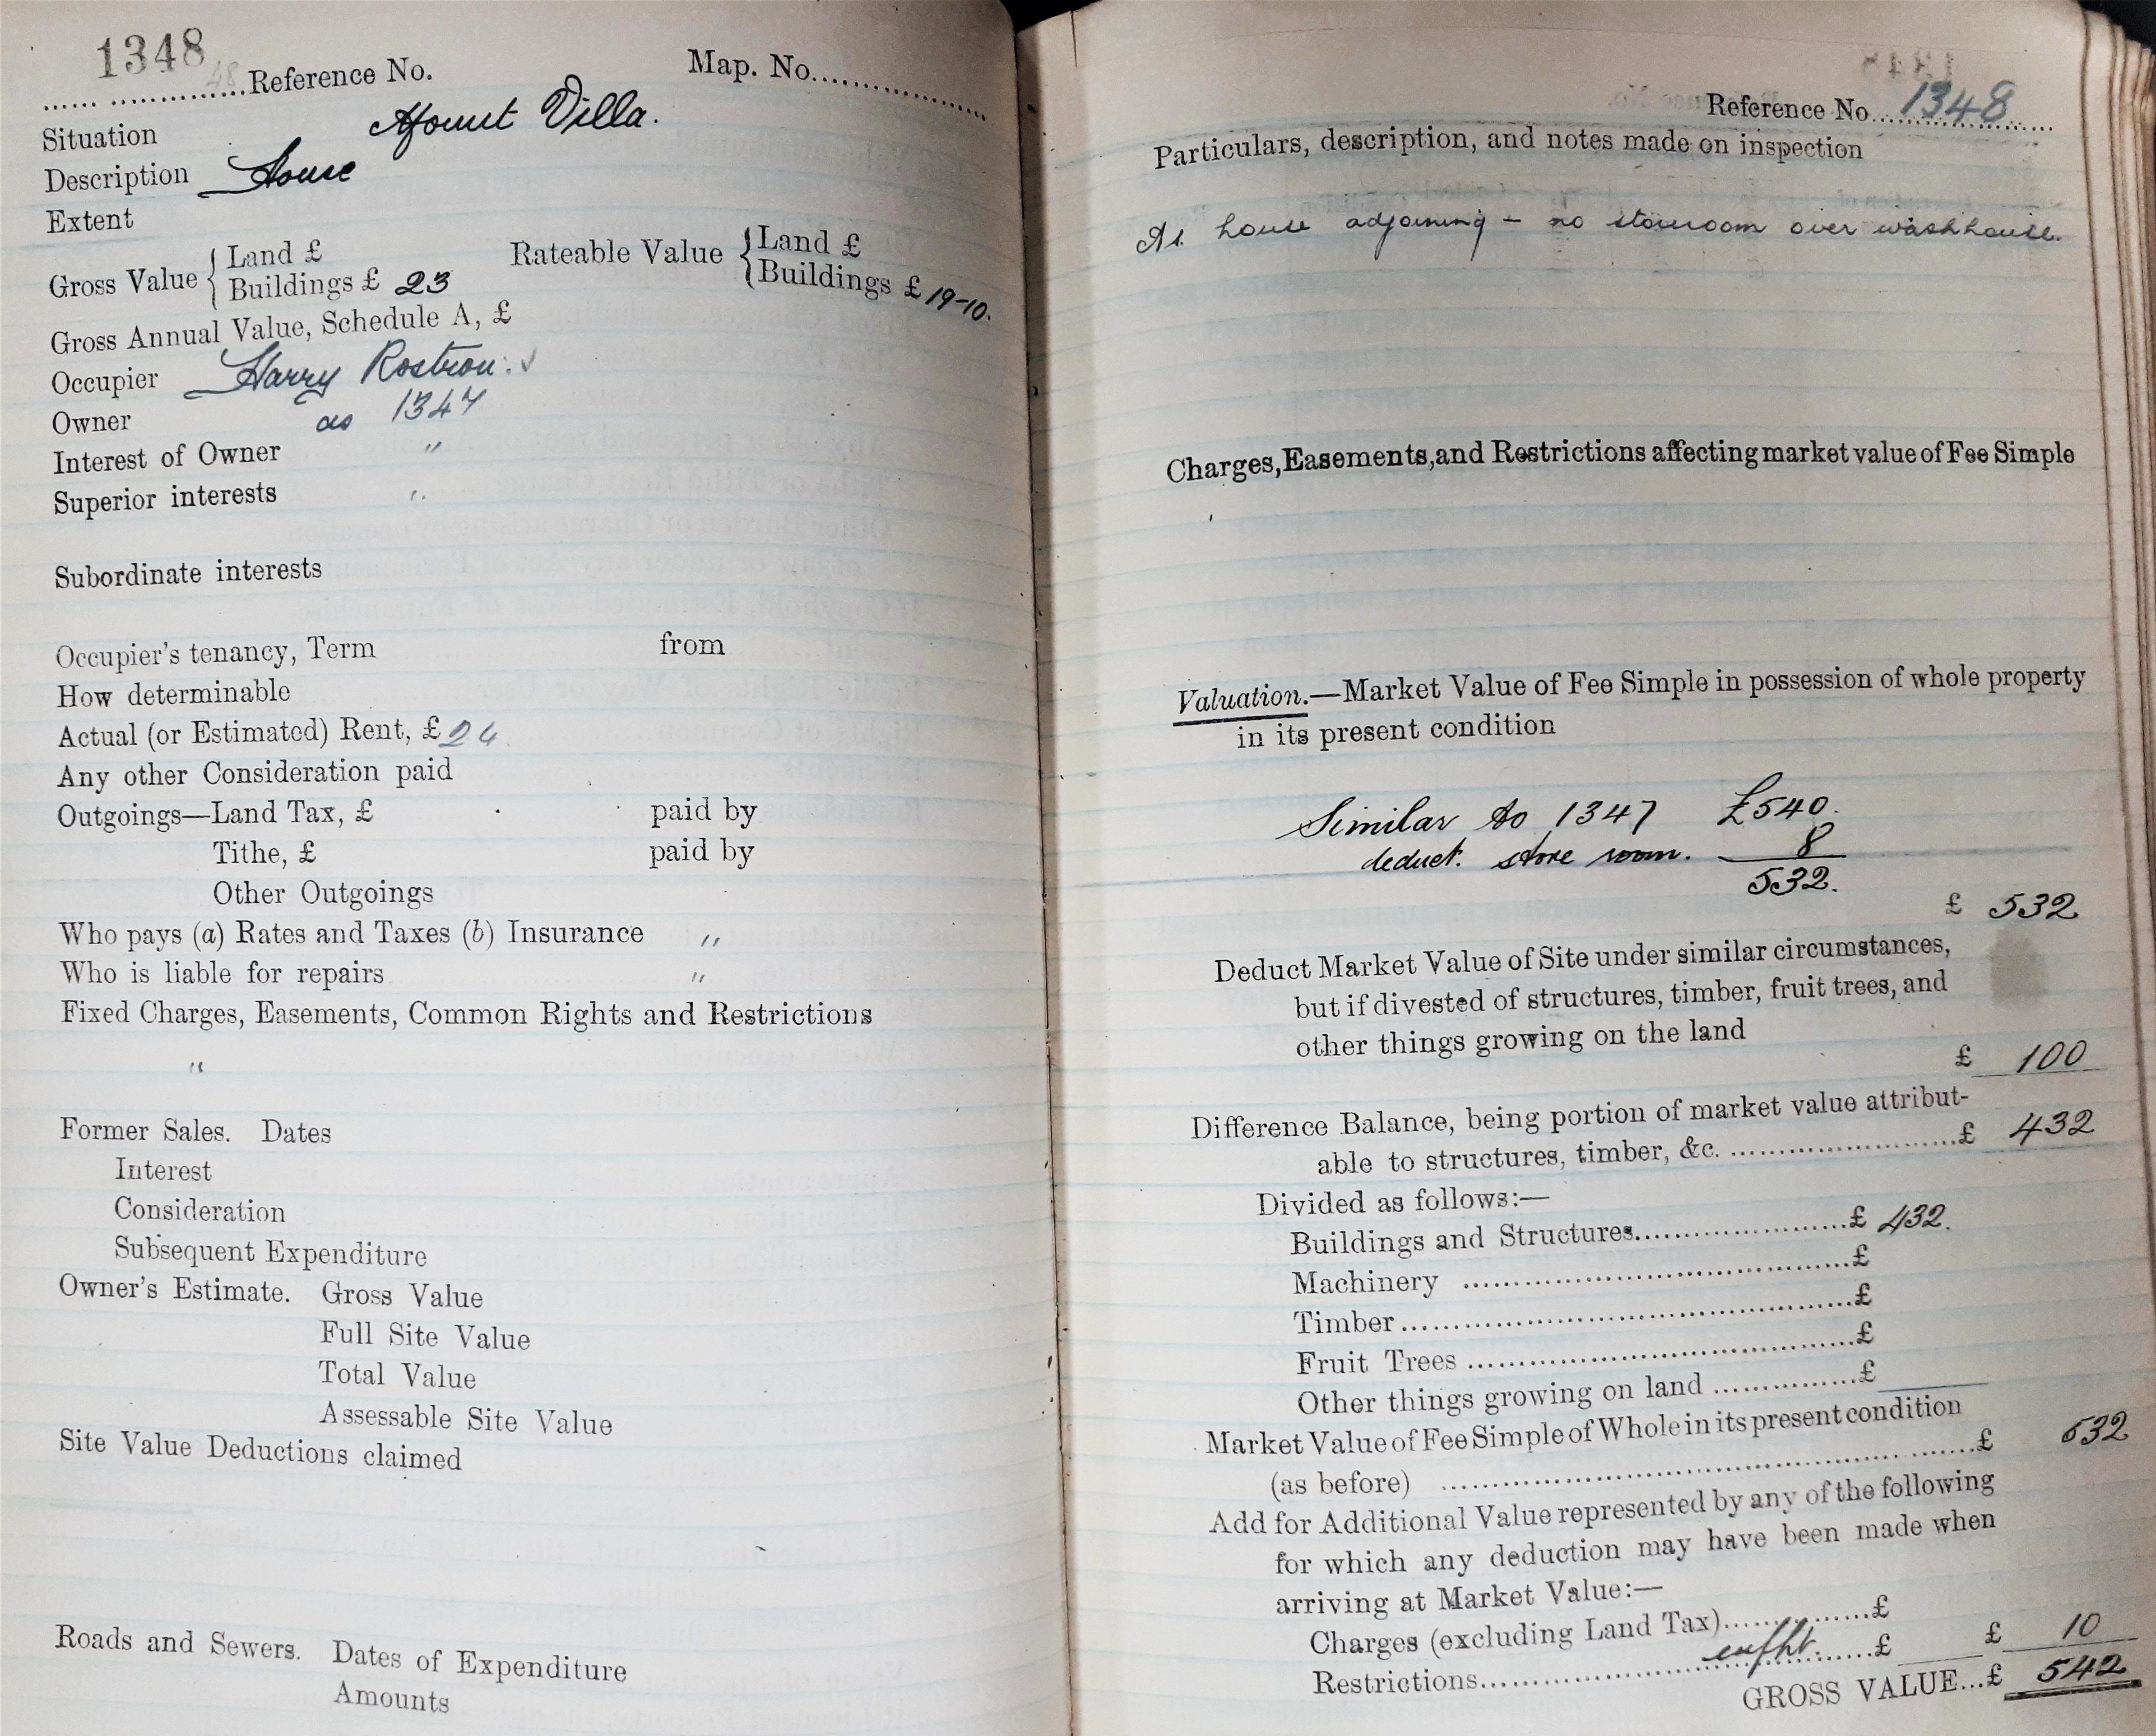 1348
Reference No. Map. No.
Situation Mount Villa.
Description House
Extent
Gross Value { Land £ Rateable Value { Land £
Buildings £ 23 Buildings £ 19-10.
Gross Annual Value, Schedule A, £
Occupier Harry Rostron. ✓
Owner as 1347
Interest of Owner "
Superior interests "
Subordinate interests
Occupier's tenancy, Term from
How determinable
Actual (or Estimated) Rent, £ 24
Any other Consideration paid
Outgoings—Land Tax, £ paid by
Tithe, £ paid by
Other Outgoings
Who pays (a) Rates and Taxes (b) Insurance "
Who is liable for repairs "
Fixed Charges, Easements, Common Rights and Restrictions
"
Former Sales. Dates
Interest
Consideration
Subsequent Expenditure
Owner's Estimate. Gross Value
Full Site Value
Total Value
Assessable Site Value
Site Value Deductions claimed
Roads and Sewers. Dates of Expenditure
Amounts
Reference No. 1348
Particulars, description, and notes made on inspection
As house adjoining – no storeroom over washhouse.
Charges, Easements, and Restrictions affecting market value of Fee Simple
Valuation.—Market Value of Fee Simple in possession of whole property
in its present condition
Similar to 1347 £540.
deduct. store room. 8
532.
£ 532
Deduct Market Value of Site under similar circumstances,
but if divested of structures, timber, fruit trees, and
other things growing on the land
£ 100
Difference Balance, being portion of market value attribut-
able to structures, timber, &c. £ 432
Divided as follows:—
Buildings and Structures £ 432.
Machinery £
Timber £
Fruit Trees £
Other things growing on land £
Market Value of Fee Simple of Whole in its present condition
(as before) £ 532
Add for Additional Value represented by any of the following
for which any deduction may have been made when
arriving at Market Value:—
Charges (excluding Land Tax) £
Restrictions £ £ 10
GROSS VALUE...£ 542